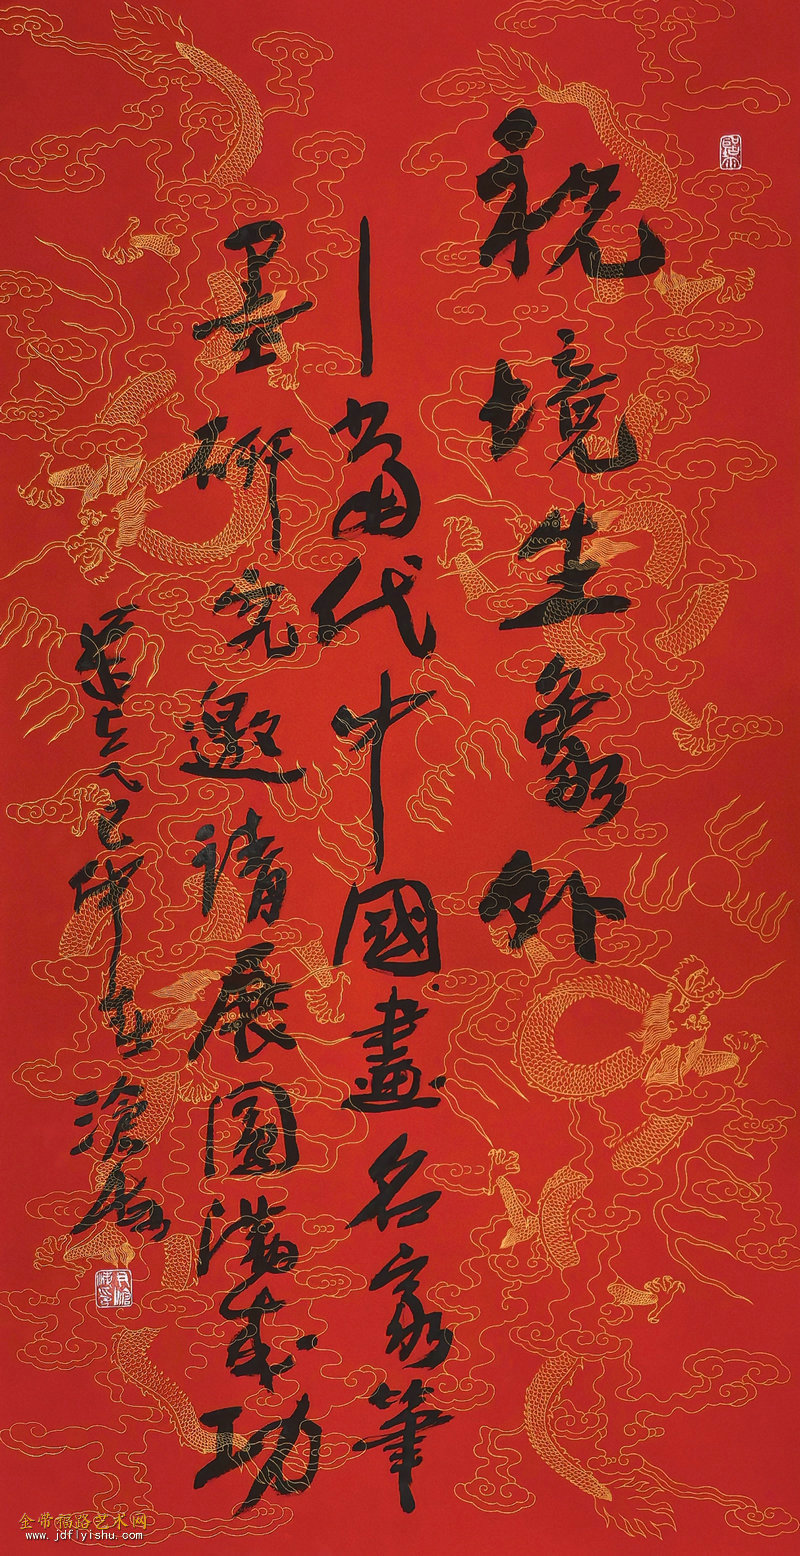 祝境生象外
—當代中國畫名家筆
墨研究邀請展圓滿成功
滄海
金带福路艺术网
www.jdflyishu.com